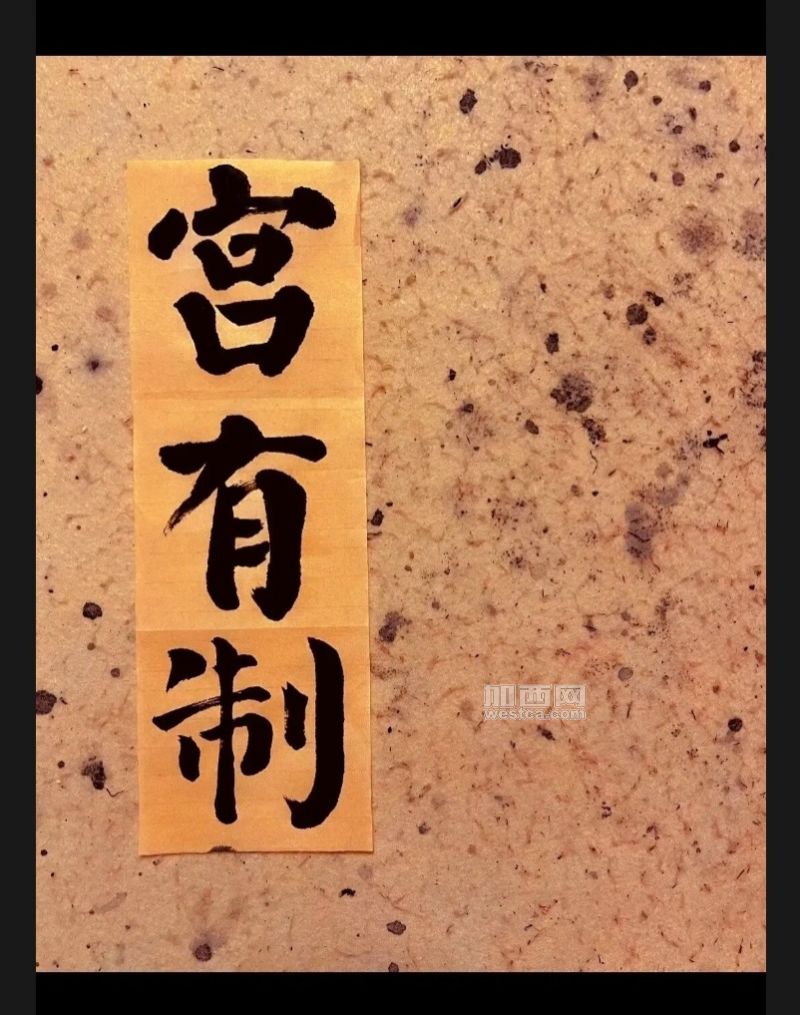 宫有制
加西网
westca.com